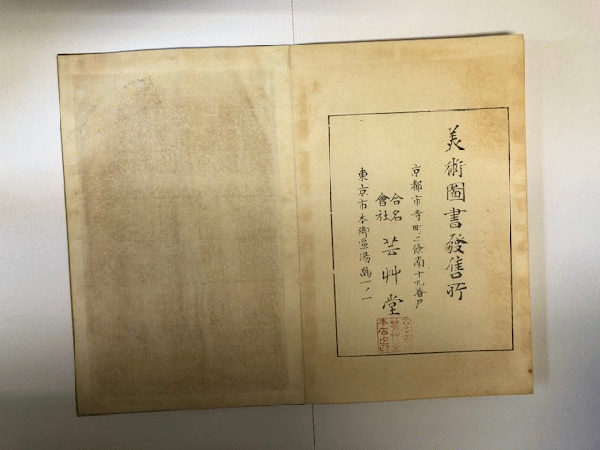 美術圖書發售所
京都市寺町二條南十九番戸
合名
會社
芸艸堂
東京市本鄕區湯島一ノ一